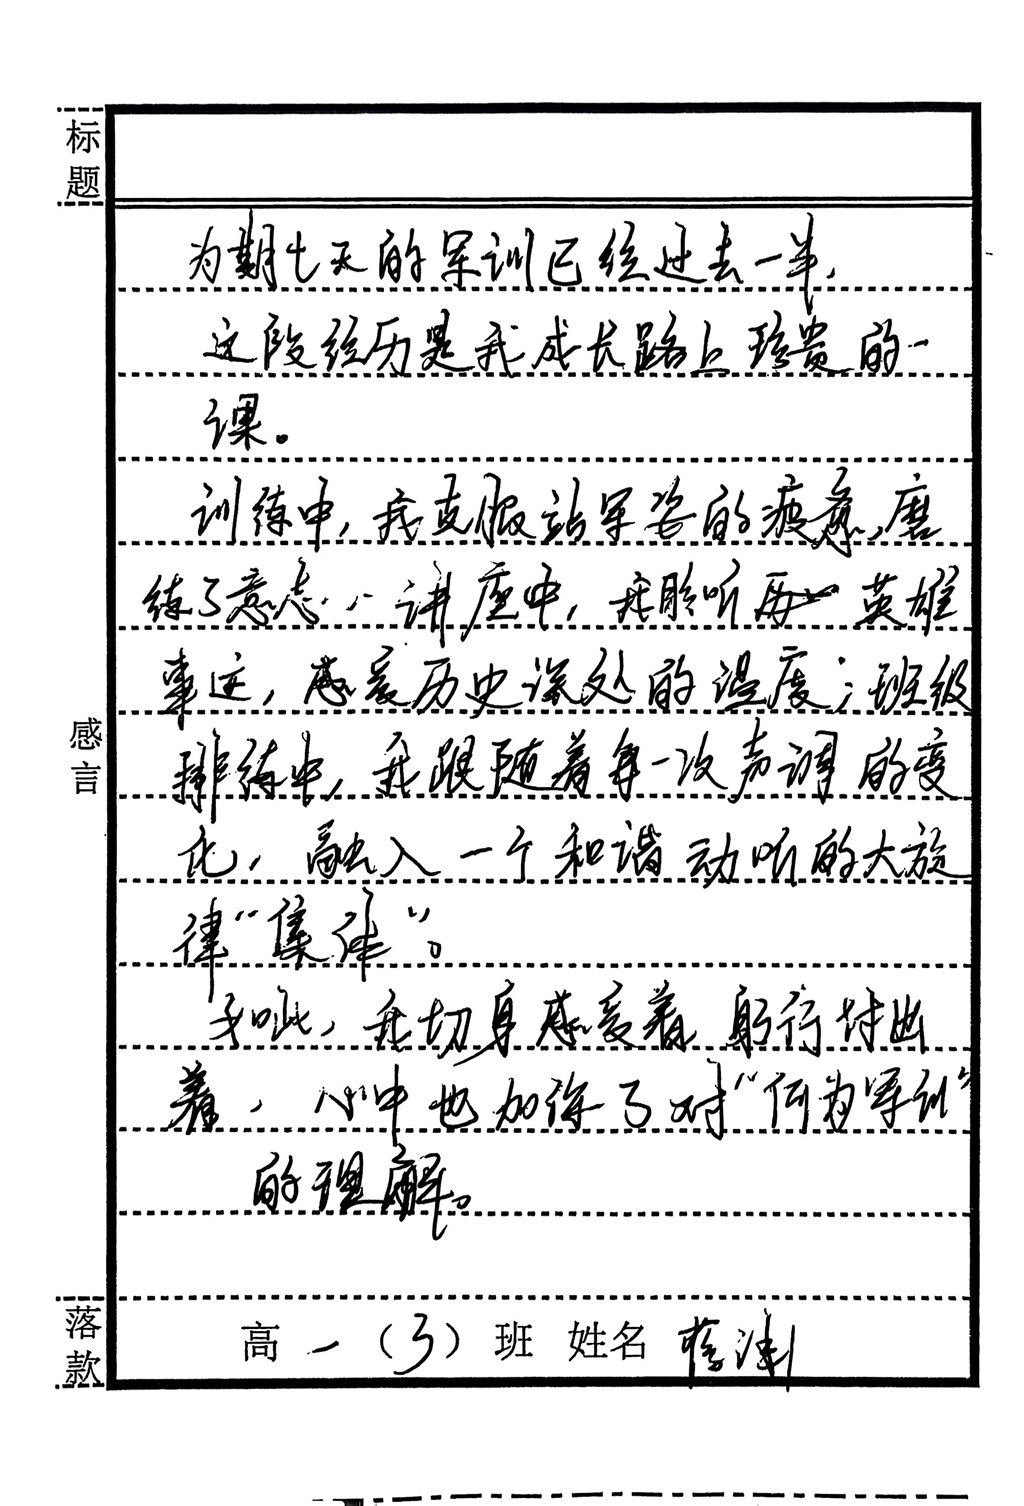 标题
为期七天的军训已经过去一半,
这段经历是我成长路上珍贵的一
课。
训练中,我克服站军姿的疲惫,磨
练了意志..讲座中,我聆听 英雄
事迹,感受历史深处的温度;班级
排练中,我跟随着每一次声调的变
化,融入一个和谐动听的大旋
律“集体”。
感言
于此,我切身感受着 躬行付出
着,心中也加深了对“何为军训”
的理解。
落款
高一(3)班 姓名